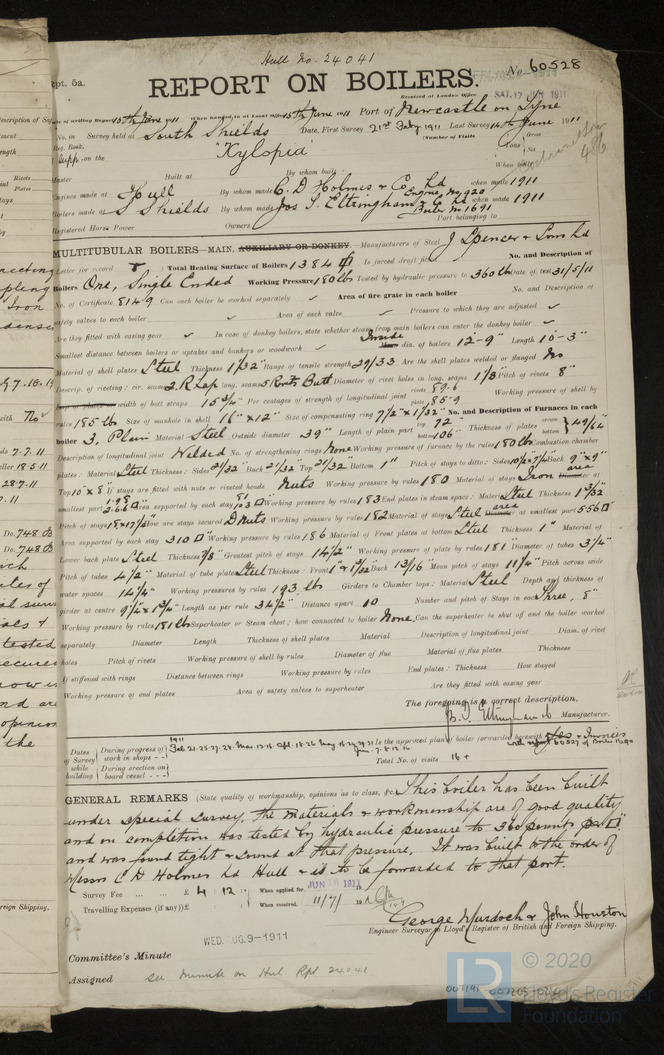 Hull No. 24041
Rpt. 5a.
REPORT ON BOILERS.
No. 60528
Received at London Office SAT. 17 JUN 1911
Date of writing Report 15th June 1911 When handed in at Local Office 15th June 1911 Port of Newcastle on Tyne
No. in Survey held at South Shields Date, First Survey 21st Feby 1911 Last Survey 14th June 1911
Reg. Book. (Number of Visits Gross
Supp. on the "Kylopia" Tons Net
Master Built at By whom built When built
Engines made at Hull By whom made C. D. Holmes & Co. Ld Engine No 920 when made 1911
Boilers made at S Shields By whom made Jos T. Eltringham & Co Ld Boiler No 1691 when made 1911
Registered Horse Power Owners Port belonging to
MULTITUBULAR BOILERS—MAIN, AUXILIARY OR DONKEY.—Manufacturers of Steel J Spencer & Sons Ld
Letter for record Total Heating Surface of Boilers 1384 Is forced draft fitted No. and Description of
Boilers One, Single Ended Working Pressure 180 lbs Tested by hydraulic pressure to 360 lbs Date of test 31/5/11
No. of Certificate 8149 Can each boiler be worked separately Area of fire grate in each boiler No. and Description of
safety valves to each boiler Area of each valve Pressure to which they are adjusted
Are they fitted with easing gear In case of donkey boilers, state whether steam from main boilers can enter the donkey boiler
Smallest distance between boilers or uptakes and bunkers or woodwork Inside dia. of boilers 12'-9" Length 10'-3"
Material of shell plates Steel Thickness 1 1/32" Range of tensile strength 29/33 Are the shell plates welded or flanged No
Descrip. of riveting: cir. seams 2.R Lap long. seams Butt Diameter of rivet holes in long. seams 1 1/8" Pitch of rivets 8"
width of butt straps 15 3/4" Per centages of strength of longitudinal joint rivets 89.6 plate 85.9 Working pressure of shell by
rules 185 lbs Size of manhole in shell 16" x 12" Size of compensating ring 7 1/2" x 1 1/32" No. and Description of Furnaces in each
boiler 3, Plain Material Steel Outside diameter 39" Length of plain part top 72" bottom 106" Thickness of plates crown bottom 49/64"
Description of longitudinal joint Welded No. of strengthening rings None Working pressure of furnace by the rules 180 lbs Combustion chamber
plates: Material Steel Thickness: Sides 21/32" Back 21/32" Top 21/32" Bottom 1" Pitch of stays to ditto: Sides Back 9" x 9"
Top 10" x 8" If stays are fitted with nuts or riveted heads Nuts Working pressure by rules 180 Material of stays Iron area at
smallest part Area supported by each stay Working pressure by rules 183 End plates in steam space: Material Steel Thickness 1 3/32"
Pitch of stays How are stays secured D Nuts Working pressure by rules 182 Material of stays Steel area at smallest part 5.56
Area supported by each stay 310 Working pressure by rules 186 Material of Front plates at bottom Steel Thickness 1" Material of
Lower back plate Steel Thickness 7/8" Greatest pitch of stays 14 1/2" Working pressure of plate by rules 181 Diameter of tubes 3 1/4"
Pitch of tubes 4 1/2" Material of tube plates Steel Thickness: Front 1" & 1 3/32" Back 13/16" Mean pitch of stays 11 1/4" Pitch across wide
water spaces 14 1/4" Working pressures by rules 193 lbs Girders to Chamber tops: Material Steel Depth and thickness of
girder at centre 9 1/2" x 1 3/4" Length as per rule 34 1/2" Distance apart 10 Number and pitch of Stays in each Three, 8"
Working pressure by rules 181 lbs Superheater or Steam chest; how connected to boiler None Can the superheater be shut off and the boiler worked
separately Diameter Length Thickness of shell plates Material Description of longitudinal joint Diam. of rivet
holes Pitch of rivets Working pressure of shell by rules Diameter of flue Material of flue plates Thickness
If stiffened with rings Distance between rings Working pressure by rules End plates: Thickness How stayed
Working pressure of end plates Area of safety valves to superheater Are they fitted with easing gear
The foregoing is a correct description,
Manufacturer.
Dates of Survey while building
During progress of work in shops - - 1911 Feb 21.25.27.28. Is the approved plan of boiler forwarded herewith Yes
During erection on board vessel - - - Total No. of visits 16 +
GENERAL REMARKS (State quality of workmanship, opinions as to class, &c. This boiler has been built
under special survey, the materials & workmanship are of good quality
and on completion was tested by hydraulic pressure to 360 pounds per □"
and was found tight & sound at that pressure. It was built to the order of
Messrs C D Holmes Ld Hull & is to be forwarded to that port.
Survey Fee ... ... £ 4 : 12 : When applied for, JUN 16 1911
Travelling Expenses (if any) £ : : When received, 11/7/1911
George Murdoch & John Houston
Engineer Surveyor to Lloyd's Register of British and Foreign Shipping.
WED. AUG. 9-1911
Committee's Minute
Assigned see minute on Hul Rpt 24041
© 2020
LR
Lloyd's Register
Foundation